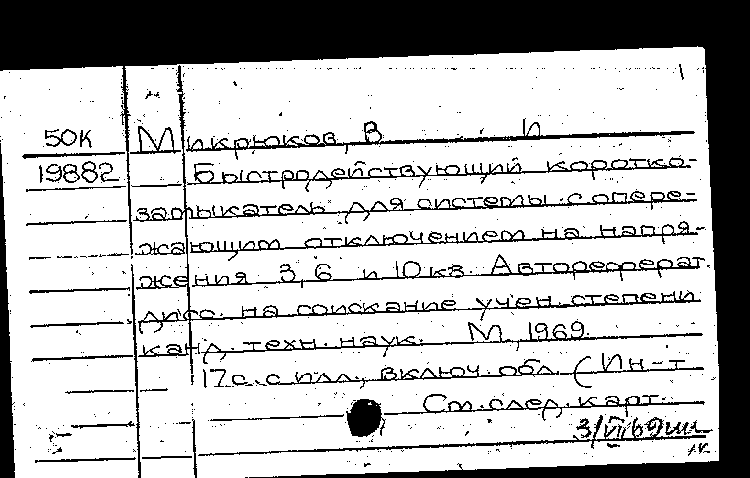 1
50К Микрюков, В И
19882 Быстродействующий коротко-
замыкатель для системы с опере-
жающим отключением на напря-
жения 3, 6 и 10 кв. Автореферат
дисс. на соискание учен. степени
канд. техн. наук. М., 1969.
17 с. с илл., включ. обл. (Ин-т
См. след. карт.